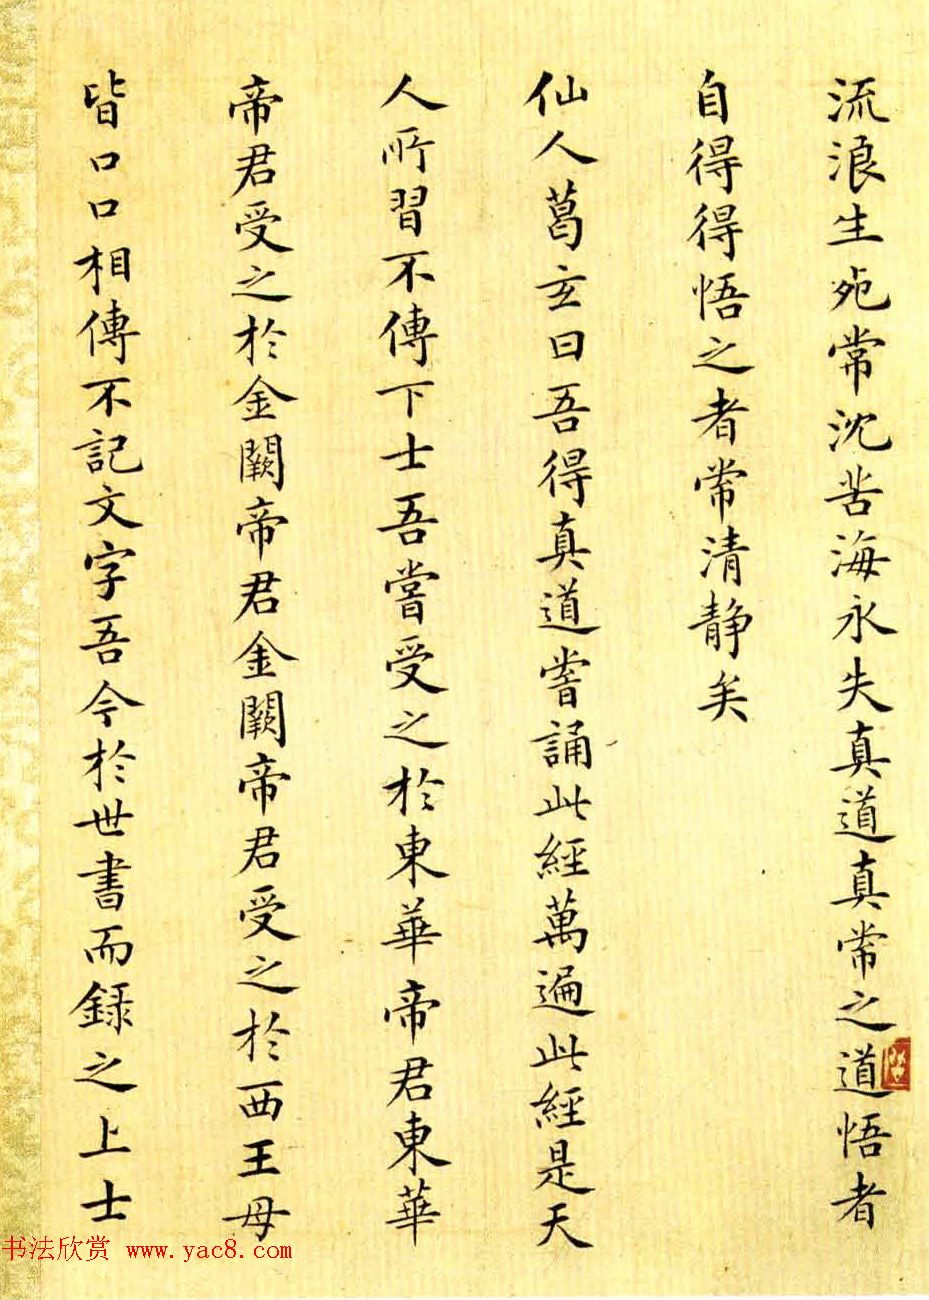 流浪生死常沈苦海永失真道真常之道悟者
自得得悟之者常清静矣
仙人葛玄曰吾得真道嘗誦此經萬遍此經是天
人所習不傳下士吾嘗受之於東華帝君東華
帝君受之於金闕帝君金闕帝君受之於西王母
皆口口相傳不記文字吾今於世書而録之上士
书法欣赏 www.yac8.com